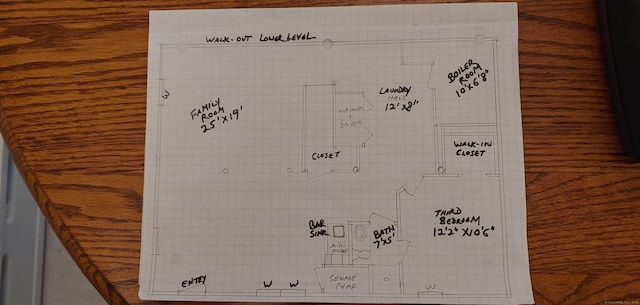 WALK-OUT LOWER LEVEL
W
FAMILY
ROOM
25' X 19'
LAUNDRY
HALL
12' X 8"
BOILER
ROOM
10' X 6'8"
WASHER
+
DRYER
CLOSET
WALK-IN
CLOSET
BAR
SINK
MINI
FRIDGE
BATH
7' X 5'
THIRD
BEDROOM
12'2" X 10'6"
SEWAGE
PUMP
ENTRY
W W
W